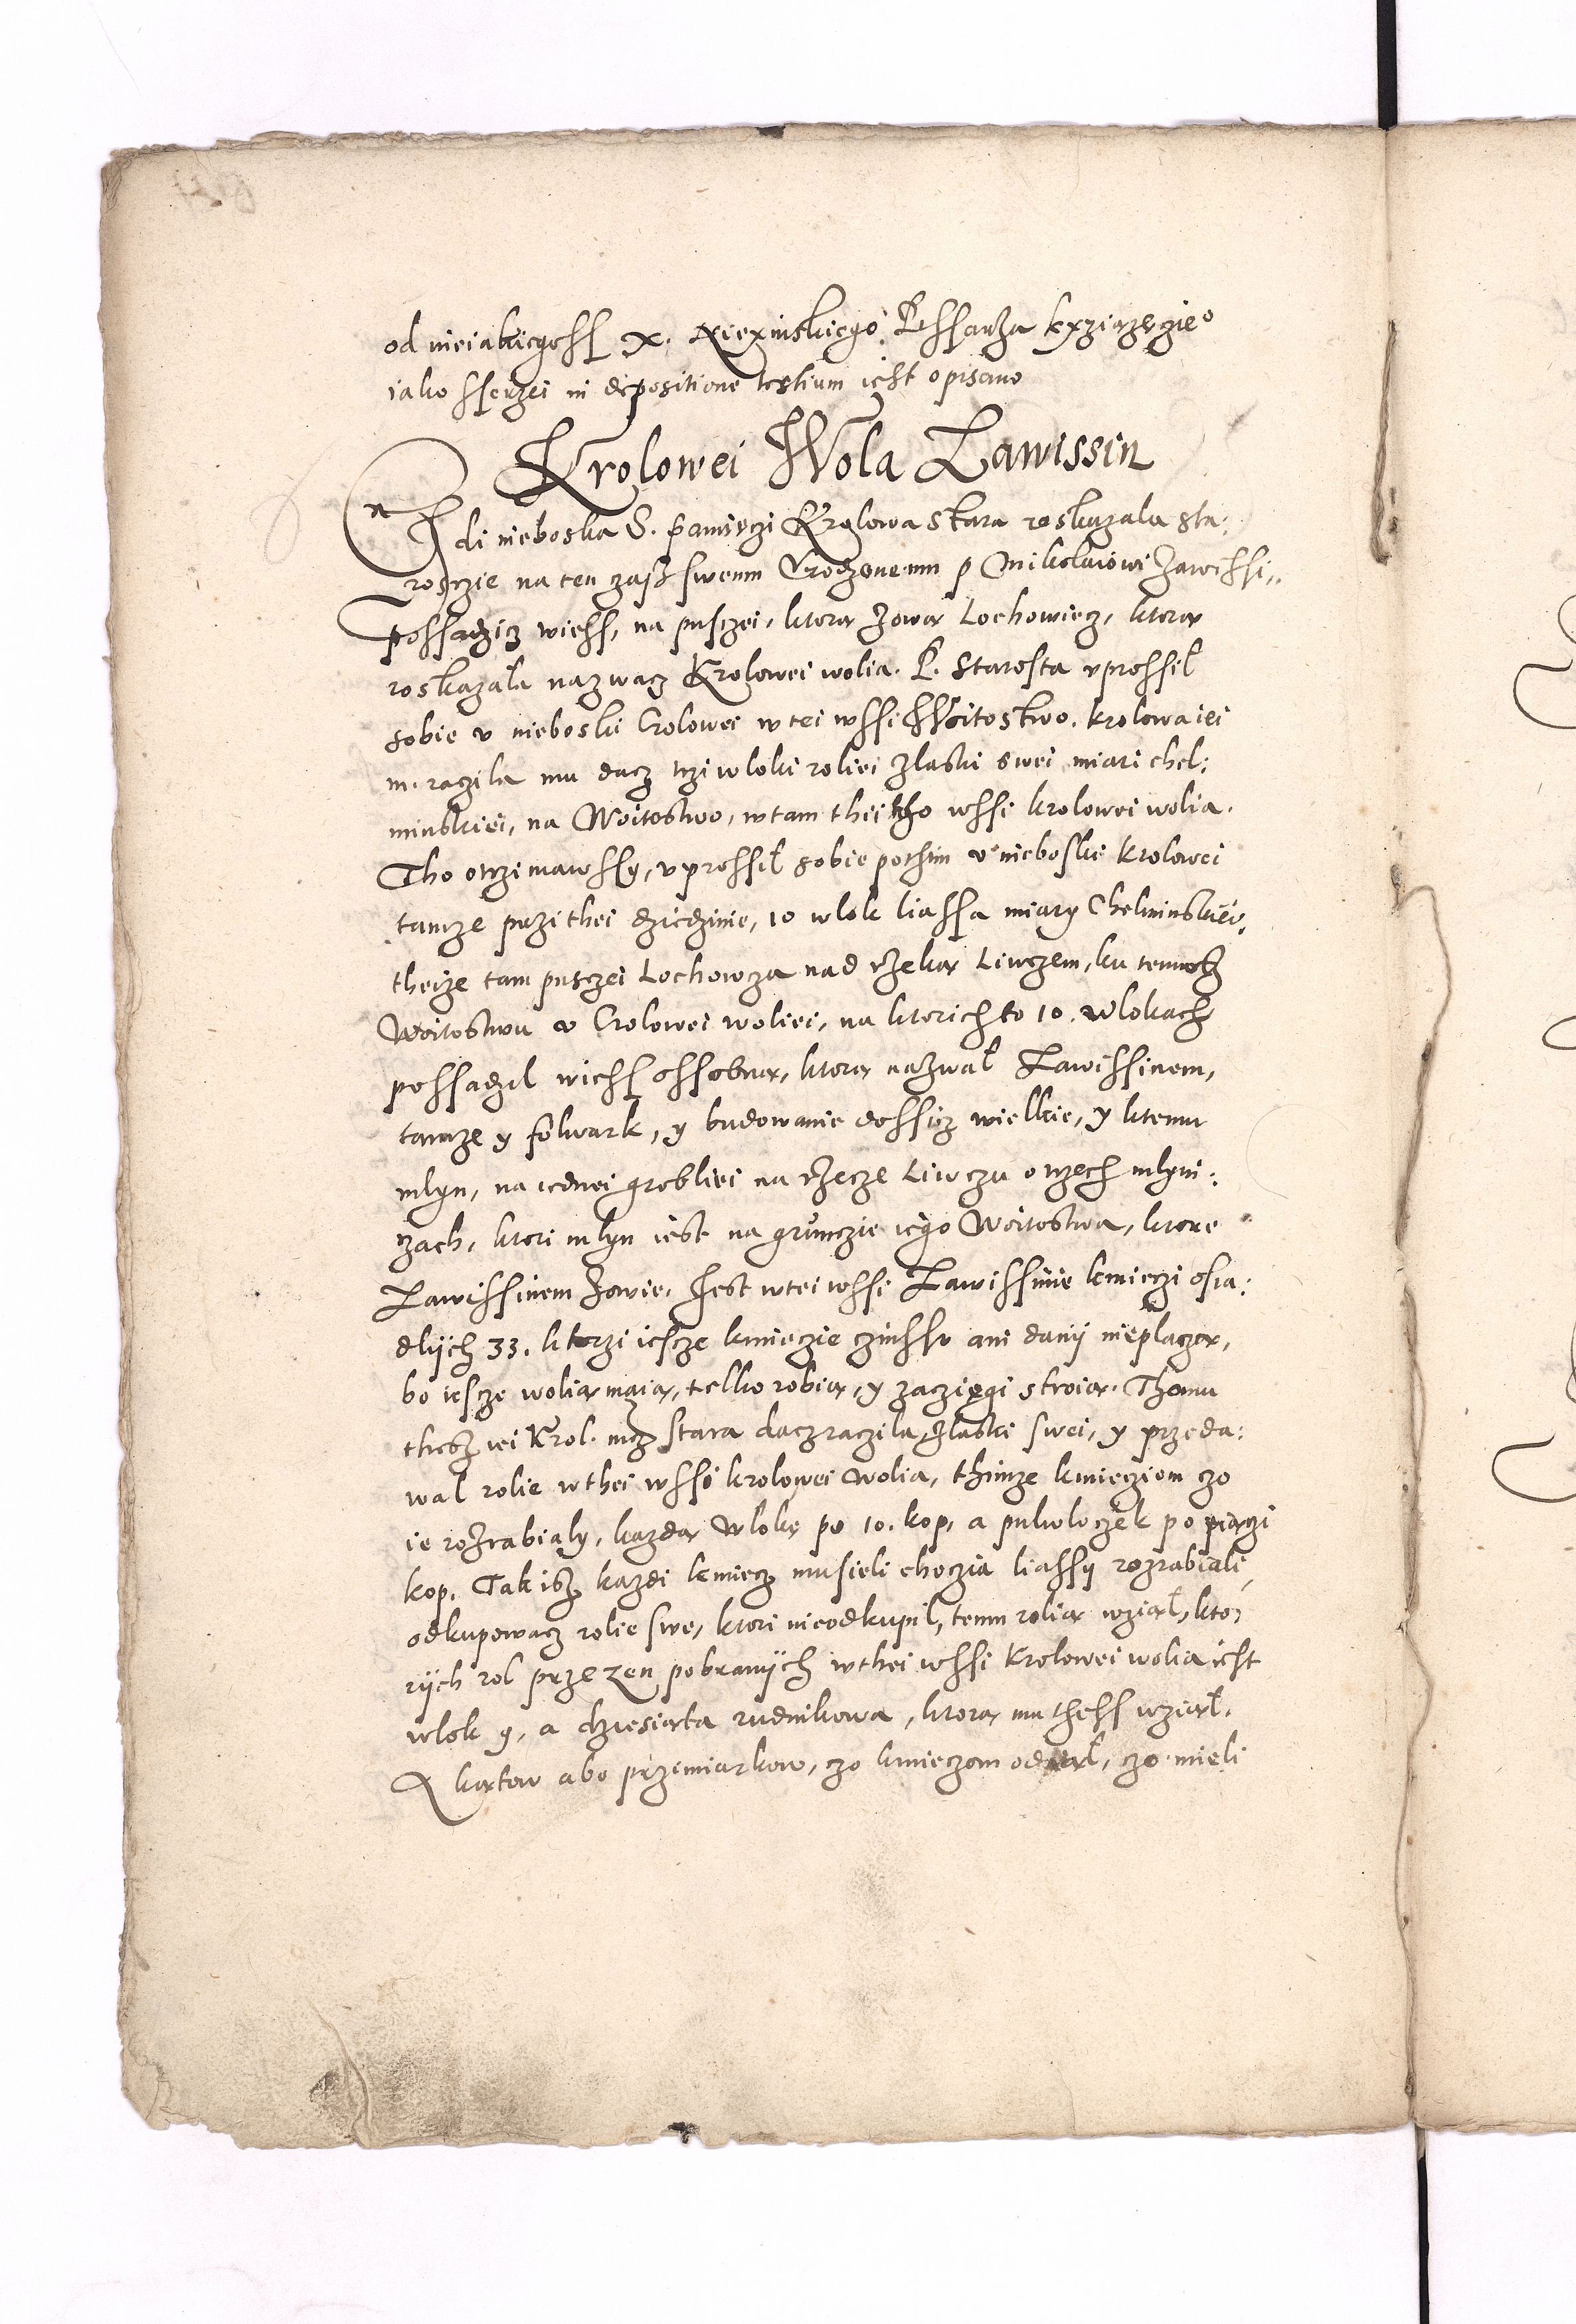 od nieiakiegoss X. Xiexinskiego Pissarza kxziązęgieo
iako sserzei in depositione testium iest opisano
Krolowei Wola Lawissin
Gdi nieboska S. pamięczi Krolowa stara roskazala sta:
rosczie na ten czasz swemu Urodzonemu p Mikolaiowi Zawissi,,
possadzicz wiess, na pusczei, ktorą zową Lochowiecz, ktorą
roskazala nazwacz Krolowei wolia. P. Starosta uprossil
sobie v nieboski Crolowei w tei wssi Woitostwo. krolowa iei
m. raczila mu dacz trzi wloki roliei z laski swei miari chel:
minskiei, na Woitostwo, w tam thei tho wssi krolowei wolia.
Tho otrzimawssy, vprossil sobie pothim v nieboskie Krolowei
tamze przi thei dziedzinie, 10 wlok liassa miary Chelminskiei,
theize tam pusczei Lochowza nad rzeką Liwczem, ku temusz
Woitostwu v Crolowei woliei, na ktorich to 10. wlokach
possadzil wiess ossobną, ktorą nazwal Lawissinem,
tamze y folwark, y budowanie dossicz wielkie, y ktemu
mlyn, na iednei grobliei na rzecze Liwczu o trzech mlyni:
czach, ktori mlyn iest na grunczie iego Woitostwa, ktore
Lawissinem zowie. Jest w tei wssi Lawissinie kmieczi osia:
dlÿch 33. ktorzi iescze kmieczie czinssu ani danÿ nieplaczą,
bo iescze wolią maią, telko robią, y zaczięgi stroią. Themu
thesz iei Krol. mcz stara dacz raczila z laski swei, y przeda:
wal rolie w thei wssi krolowei wolia, thimze kmiecziom czo
ie rozrabialy, kazdą wlokę po 10. kop, a pulwloczek po piączi
kop. Tak isz kazdi kmiecz musieli choczia liassÿ rozrabiali
odkupowacz rolie swe, ktori nieodkupil, temu rolią wziąl, kto:
rÿch rol przezen pobranÿch w thei wssi Krolowei wolia iest
wlok 9, a dziesiąta rudnikowa, ktorą mu thess wziąl.
A kątow abo przimiarkow, czo kmieczom odiąl, czo mieli